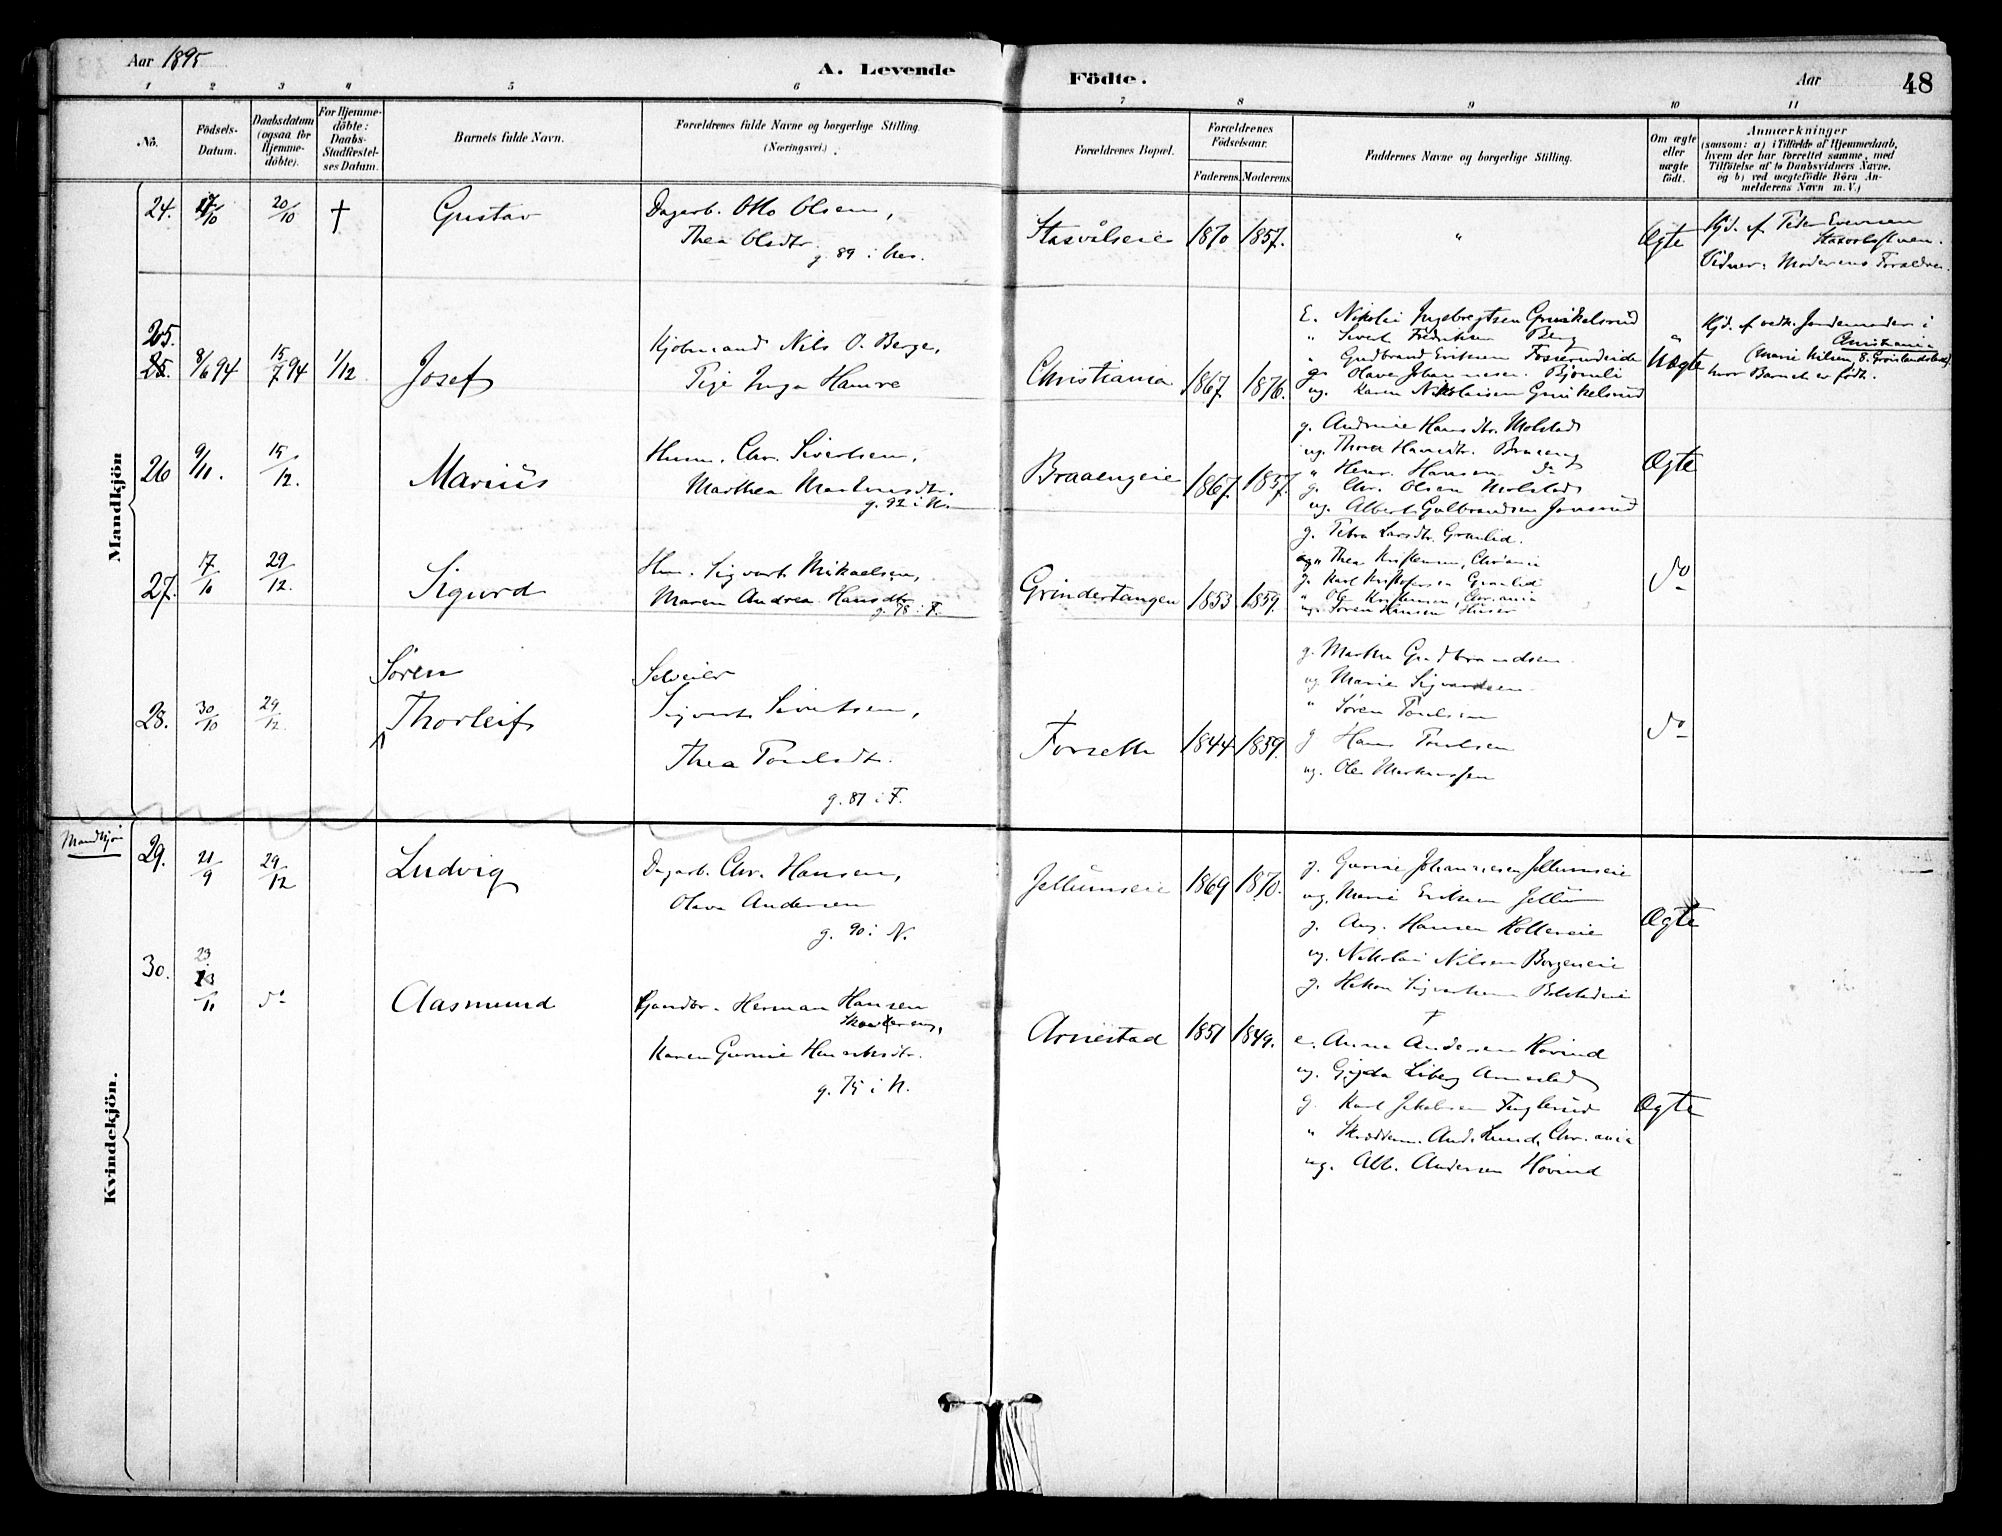 Aar 1895
A. Levende
Födte.
Aar
48
1 2 3 4 5 6 7 8 9 10 11
No.
Födsels-
Datum.
Daabsdatum
(ogsaa for
Hjemme-
döbte).
For Hjemme-
döbte:
Daabs-
Stadfæstel-
ses Datum.
Barnets fulde Navn.
Forældrenes fulde Navne og borgerlige Stilling.
(Næringsvei.)
Forældrenes Bopæl.
Forældrenes
Födselsaar.
Faderens.
Moderens.
Faddernes Navne og borgerlige Stilling.
Om ægte
eller
uægte
födt.
Anmærkninger
(saasom: a) i Tilfælde af Hjemmedaab,
hvem der har forrettet samme, med
Tilföielse af to Daabsvidners Navne.
og b) ved uægtefödte Börn An-
melderens Navn m. V.)
Mandkjön
24. 17/10 20/10 † Gustav
Dagarb. Otto Olsen,
Thea Olsdtr.
g. 89 i Nes.
Stasvålseie 1870 1857.
"
Ægte
Hjd. af Peder Evensen
Vidner: Moderens Forældre.
25.
25. 8/6 94 15/7 94 1/12 Josef
Kjöbmand Nils O. Berge,
Inga Hamre
Christiania 1867. 1876.
E. Nikolai Ingebregtsen Grinkelsrud
" Sivert Fredriksen Berg
" Gudbrand Eriksen
g. Olava Johannesen Bjönnli
ug. Karen Nikolaisen Grinkelsrud
Uægte
Hjd. af vedk. Jordemoder i
Christiania
(Marie Nilsen, 8. Grönlandsleret)
hvor Barnet er födt.
26 9/11. 15/12. Marius
Husm. Chr. Sivertsen,
Marthea Martinusdtr.
g. 92 i N.
Braaengeie 1867. 1857.
g. Andrine Hansdtr. Molstad
ug. Thora Hansdtr. Braaeng
" Henr. Hansen do
g. Chr. Olsen Molstad
ug. Albert Gulbrandsen Jonsrud
Ægte
27. 17/10 29/12. Sigurd
Hm. Sigvart Mikaelsen,
Maren Andrea Hansdtr.
g. 78 i F.
Grindertangen 1853. 1859.
g. Petra Larsdtr. Granlid.
ug. Thea Kristensen, Chr.ania
g. Karl Kristofersen Granlid
" Ole Kristensen, Chr.ania
ug. Sören Hansen Huser
do
28. 30/10 29/12.
Sören
Thorleif
Selveier
Sigvart Sivertsen,
Thea Poulsdtr.
g. 87 i F.
Forseth 1844 1859.
g. Marthe Gudbrandsen
ug. Marie Sigvartsen
" Sören Poulsen
g Hans Poulsen
ug. Ole Martinussen
do
Mandkjön
29. 21/9 29/12 Ludvig
Dagarb. Chr. Hansen,
Olava Andersen
g. 90 i N.
Jellumseie 1869 1870.
g. Gurine Johannesen Jellumseie
ug. Marie Eriksen Jellum
g. Aug. Hansen Holtereie
ug. Nikolai Nilsen Borgeneie
g. Hakon Sigvartsen Bolstadeie
Ægte
Kvindekjön.
30. 23/11 do Aasmund
Gaardbr. Herman Hansen
Karen Gurine Henriksdtr.
g. 75 i N.
Arnestad 1851 1849.
†
e. Anne Andersen Hovind
ug. Gyda Liberg Arnestad
g. Karl Jakobsen Fuglerud
" Skrædderm. And. Lund, Chr.ania
ug. Alb. Andersen Hovind
Ægte